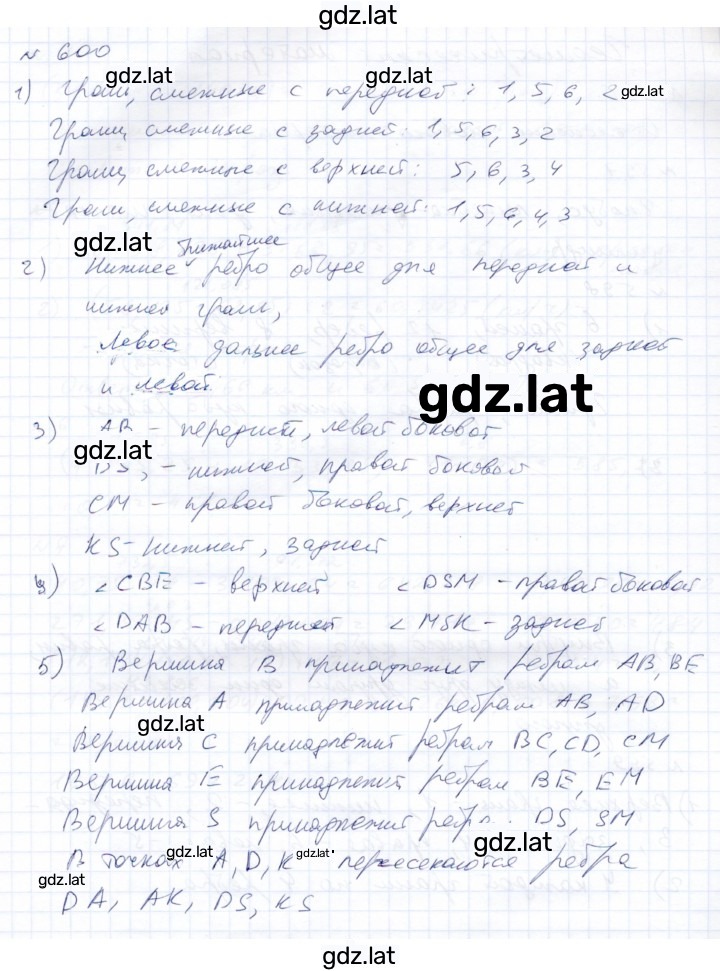 gdz.lat
№ 600
gdz.lat
1) Грани, смежные с передней: 1, 5, 6, 2 gdz.lat
Грани смежные с задней: 1, 5, 6, 3, 2
Грани смежные с верхней: 5, 6, 3, 4
Грани, смежные с нижней: 1, 5, 6, 4, 3
gdz.lat ближайшее
2) Нижнее ребро общее для передней и
нижней грани,
Левое дальнее ребро общее для задней
и левой
gdz.lat
3) AB – передней, левой боковой
gdz.lat
DS, – нижней, правой боковой
CM – правой боковой, верхней
KS – нижней, задней
4) ∠CBE – верхней ∠DSM – правой боковой
∠DAB – передней ∠MSK – задней
5) Вершина B принадлежит ребрам AB, BE
Вершина A принадлежит ребрам AB, AD
gdz.lat
Вершина C принадлежит ребрам BC, CD, CM
Вершина E принадлежит ребрам BE, EM
Вершина S принадлежит ребр. DS, SM
gdz.lat
В точках A, D, K пересекаются ребра
gdz.lat gdz.lat
gdz.lat
DA, AK, DS, KS
gdz.lat